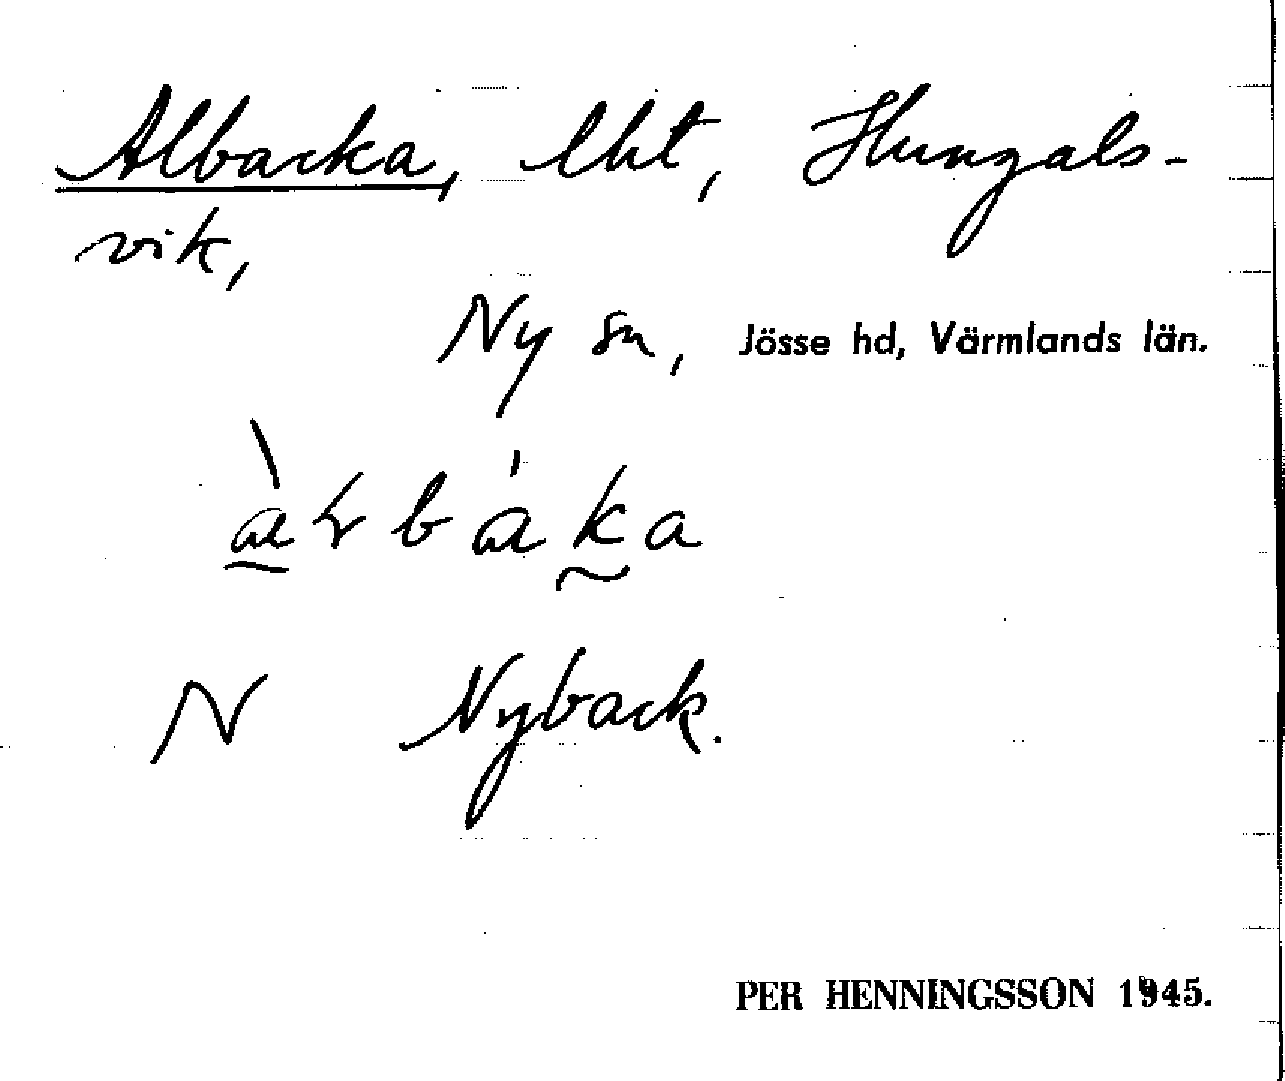 Albacka, lht, Hungals-
vik,
Ny sn, Jösse hd, Värmlands län.
N Nyback.
PER HENNINGSSON 1945.